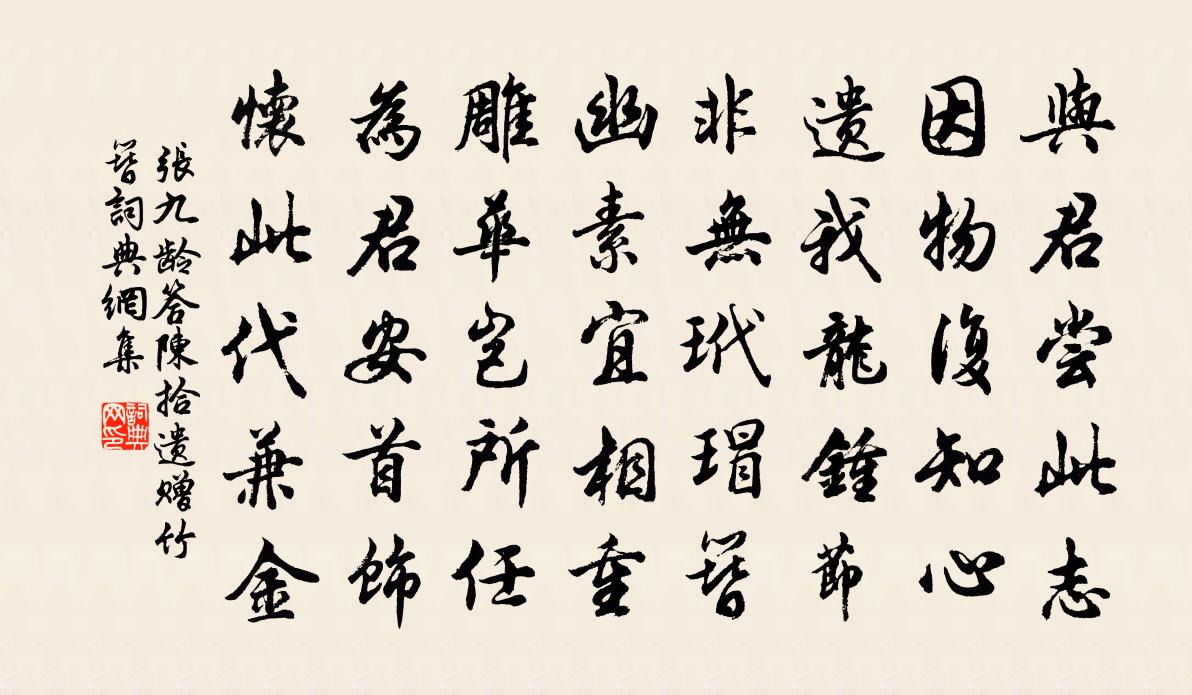 與君嘗此志
因物復知心
遺我龍鍾節
非無玳瑁簪
幽素宜相重
雕華豈所任
為君安首飾
懷此代兼金
張九齡答陳拾遺贈竹
簪詞典網集
詞典
网印